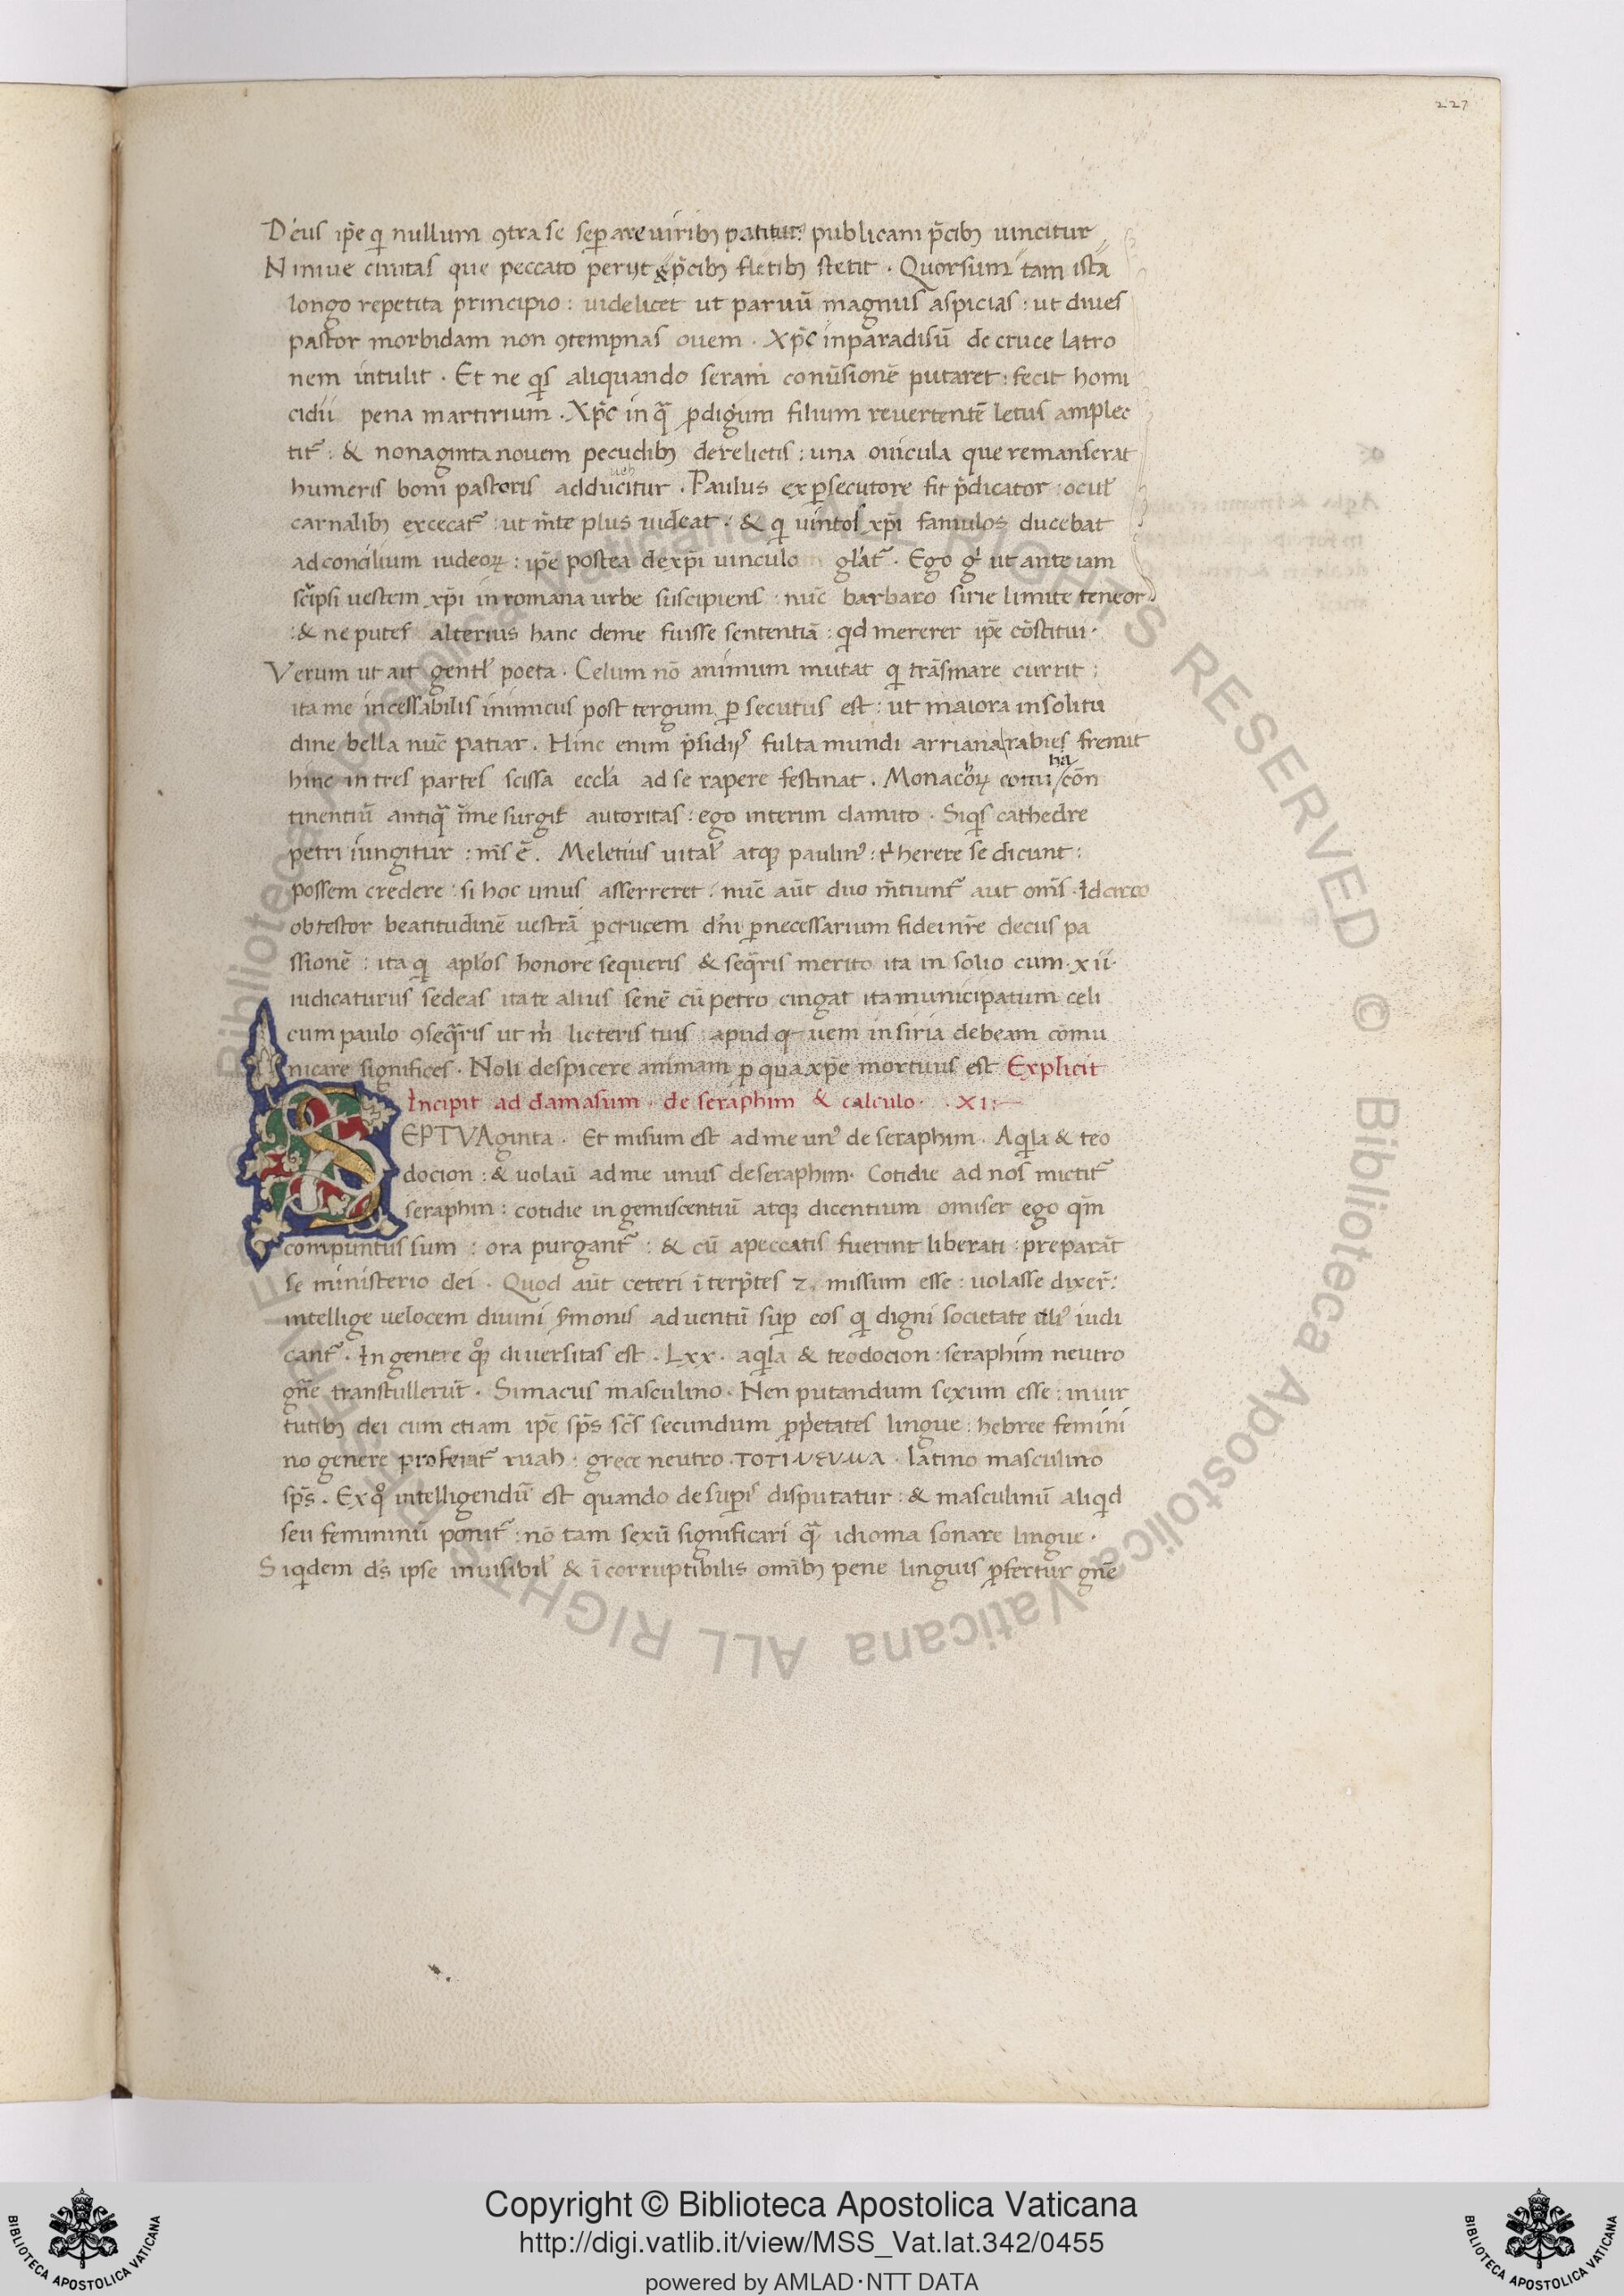 227
Deus ip̃e qi nullum ꝯtra se seꝑare uiribꝫ patitur: publicani p̃cibꝫ uincitur
Niniue ciuitas que peccato perijt & p̃cibꝫ fletibꝫ stetit . Quorsum tam ista
longo repetita principio : uidelicet ut paruũ magnus aspicias : ut diues
pastor morbidam non ꝯtempnas ouem . Xp̃c in paradisũ de cruce latro
nem intulit . Et ne qis aliquando seram conũsionẽ putaret : fecit homi
cidii pena martirium . Xp̃c in qã ꝓdigum filium reuertentẽ letus amplec
titr̃ : & nonaginta nouem pecudibꝫ derelictis : una ouicula que remanserat
humeris boni pastoris adducitur . Paulus ex ꝑsecutore fit p̃dicator : ocul̃
carnalibꝫ excecatr̃ : ut m̃te plus uideat . & qi uintos xp̃i famulos ducebat
ad concilium iudeoꝝ : ip̃e postea de xp̃i uinculo gl̃atr̃ . Ego gi ut ante iam
sc̃ipsi uestem xp̃i in romana urbe suscipiens : nũc barbaro sirie limite teneor
: & ne putes alterius hanc de me fuisse sententiã : qd mererer ip̃e cõstitui .
Verum ut ait gentl̃ poeta . Celum nõ animum mutat qi trãsmare currit :
ita me incessabilis inimicus post tergum ꝑsecutus est : ut maiora in solitu
dine bella nũc patiar . Hinc enim p̃sidijs fulta mundi arriana rabies fremit
hinc in tres partes scissa eccl̃a ad se rapere festinat . Monacoꝝ comu /cõn
tinentiũ antiqã ĩ me surgit autoritas : ego interim clamito . Siqis cathedre
petri iungitur : m̃s ẽ . Meletius uital̃ atqꝫ paulinꝰ : tͥ herere se dicunt :
possem credere : si hoc unus asserreret . nũc aũt duo m̃tiuntr̃ aut om̃s . Idcirco
obtestor beatitudinẽ uestrã ꝑ crucem dñi ꝑ necessarium fidei nr̃e decus pa
ssionẽ : ita qi apl̃os honore sequeris & seq̃ris merito ita in solio cum . xii .
iudicaturus sedeas ita te alius senẽ cũ petro cingat ita municipatum celi
cum paulo ꝯseq̃ris ut m̃ licteris tuis : apud q uem in siria debeam cõmu
nicare significes . Noli despicere animam ꝑ qua xp̃e mortuus est Explicit
Incipit ad damasum . de seraphim & calculo . . XI :
SEPTVAginta . Et misum est ad me unꝰ de seraphim . Aqila & teo
docion : & uolaũ ad me unus de seraphim . Cotidie ad nos mictitr̃
seraphin : cotidie in gemiscentiũ atqꝫ dicentium o miser ego qm̃
compuntus sum : ora purgantr̃ : & cũ a peccatis fuerint liberati : preparãt
se ministerio dei . Quod aũt ceteri ĩterp̃tes ⁊ missum esse : uolasse dixer̃ :
intellige uelocem diuini s̃monis aduentũ suꝑ eos qi digni societate illiꝰ iudi
cantr̃ . In genere qoqꝫ diuersitas est . Lxx . aqila & teodocion : seraphim neutro
gñe transtullerũt . Simacus masculino . Nen putandum sexum esse : in uir
tutibꝫ dei cum etiam ip̃e sp̃s sc̃s secundum ꝓp̃etates lingue : hebree femini
no genere proferatr̃ ruah : grece neutro . TOTINEVMA . latino masculino
sp̃s . Ex qo intelligendũ est quando de suꝑis disputatur : & masculinũ aliqid
seu femininũ ponitr̃ : nõ tam sexũ significari qã idioma sonare lingue .
Siqidem ds̃ ipse inuisibil̃ & ĩcorruptibilis omĩbꝫ pene linguis ꝓfertur gñe
Copyright © Biblioteca Apostolica Vaticana
http://digi.vatlib.it/view/MSS_Vat.lat.342/0455
powered by AMLAD·NTT DATA
BIBLIOTECA APOSTOLICA VATICANA
BIBLIOTECA APOSTOLICA VATICANA